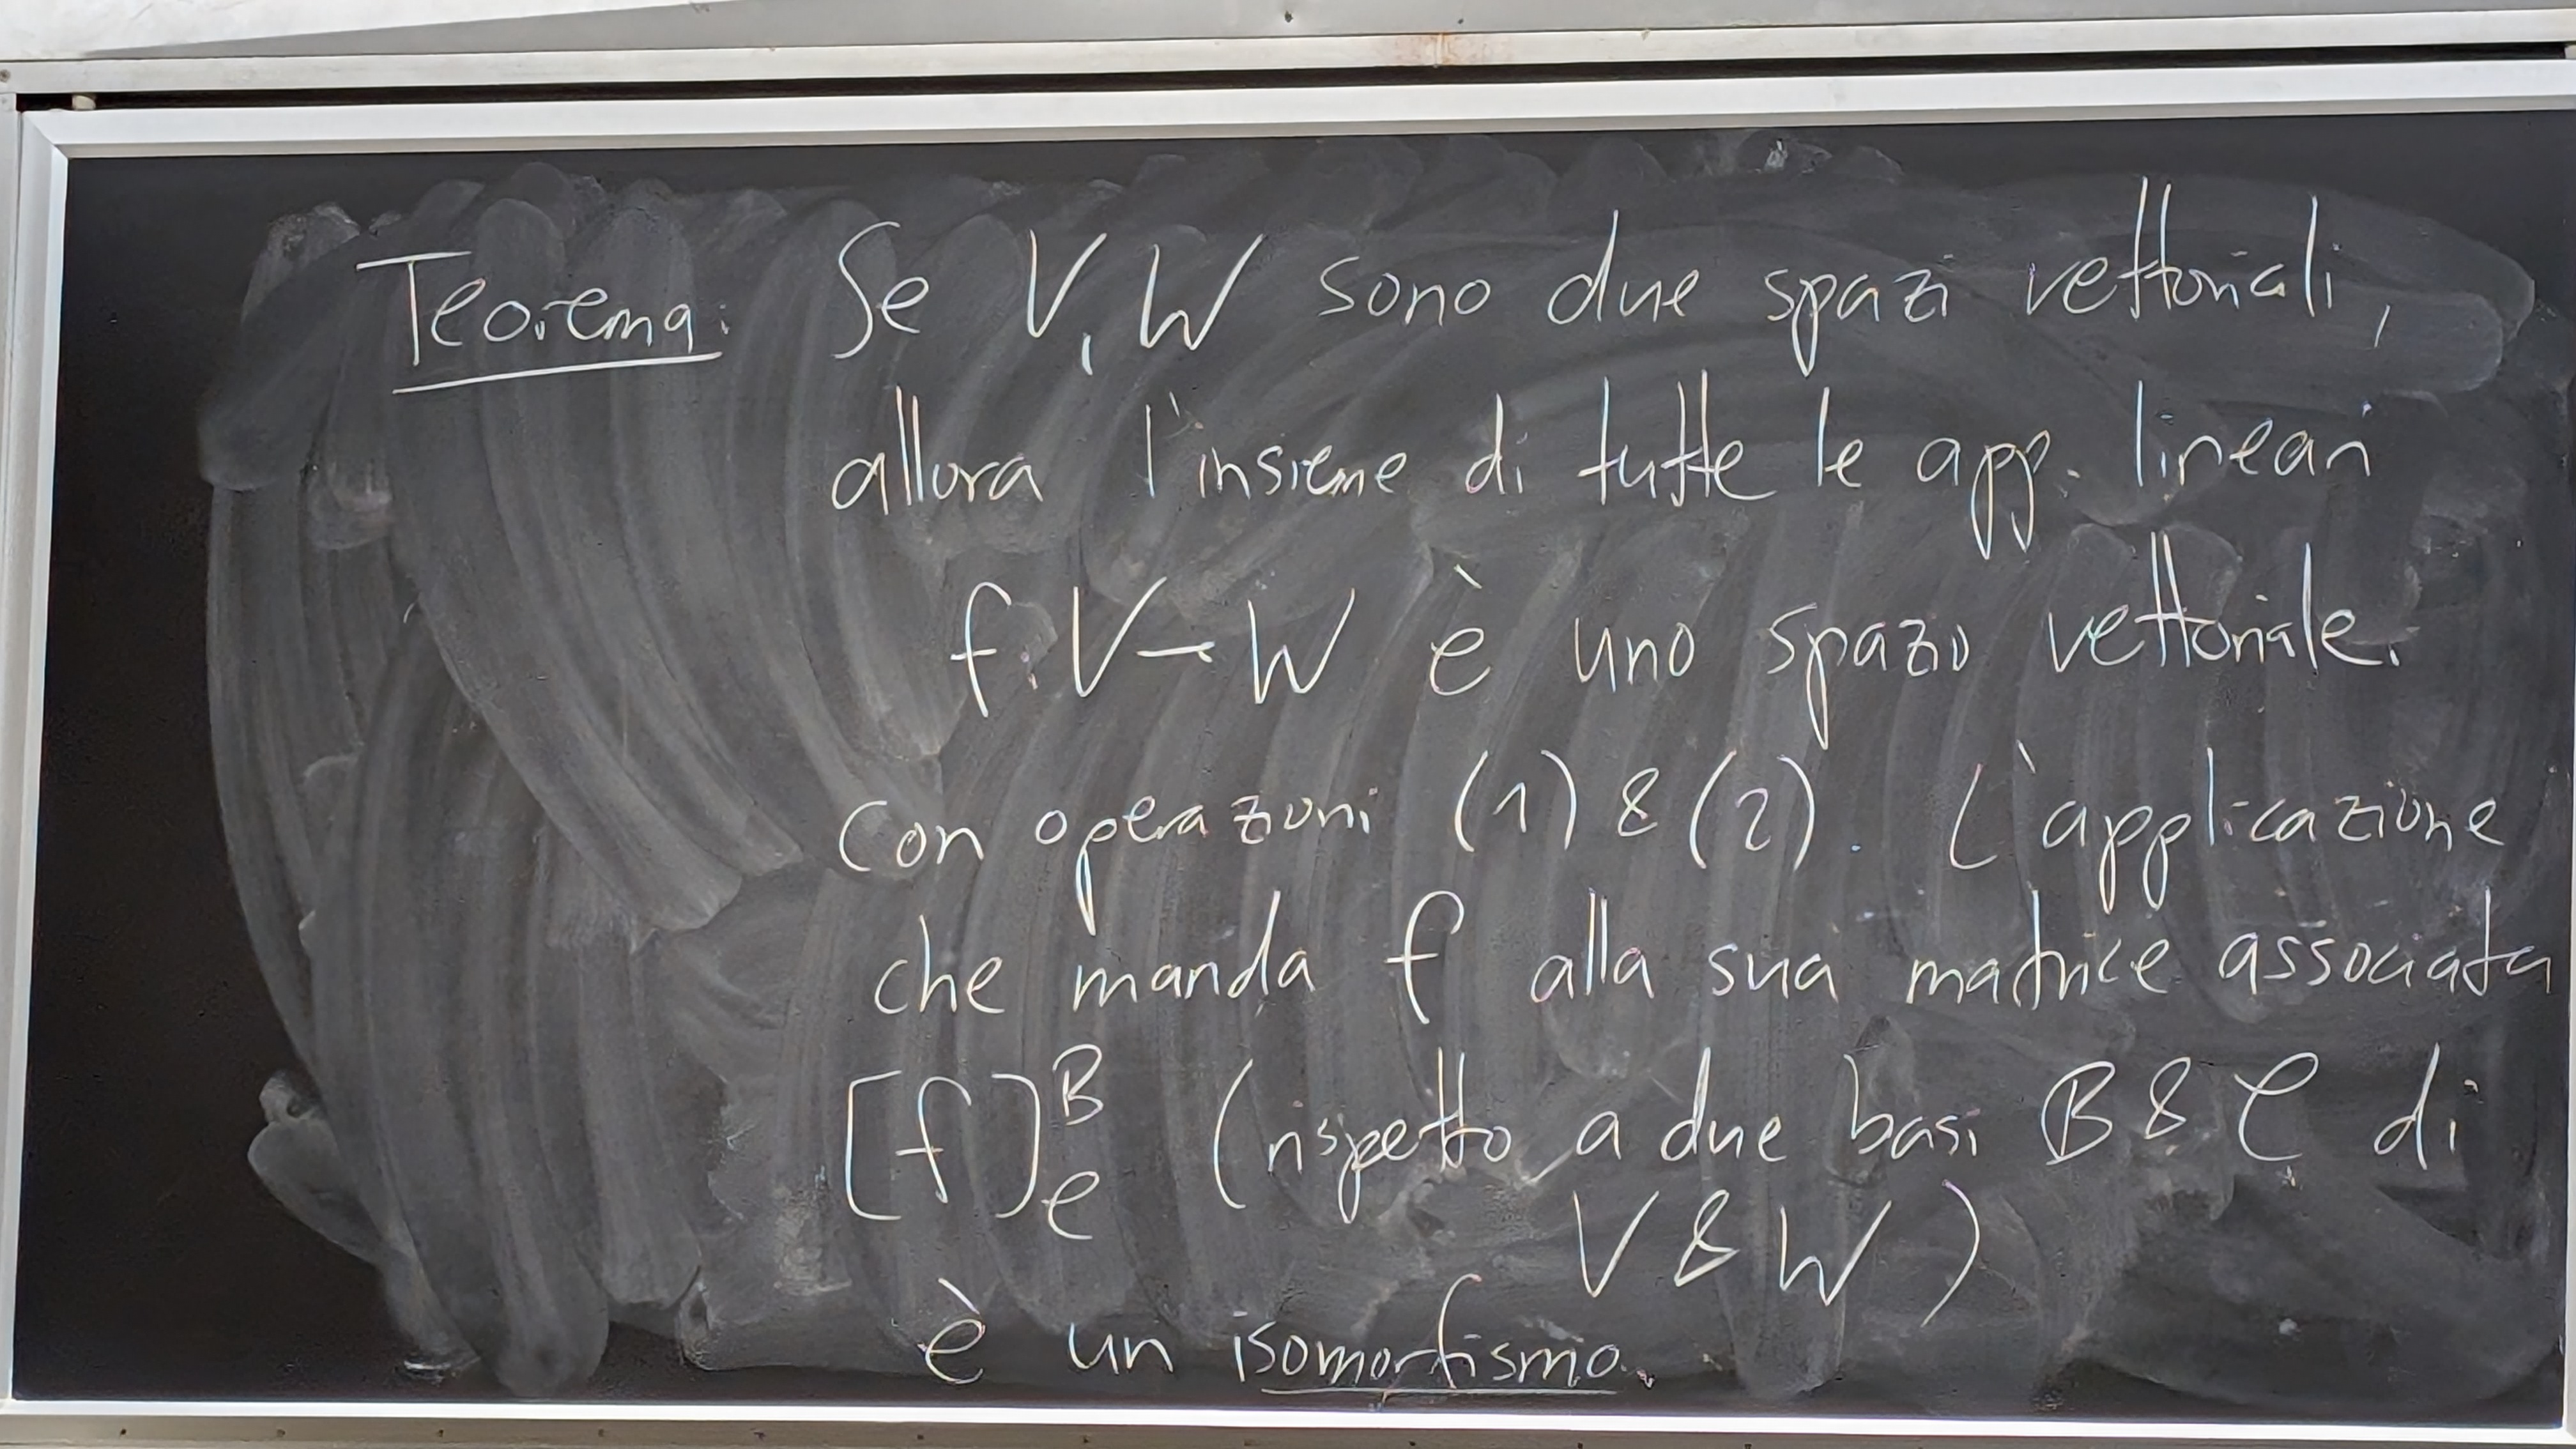 Teorema: Se V, W sono due spazi vettoriali,
allora l'insieme di tutte le app. lineari
f: V → W è uno spazio vettoriale.
con operazioni (1) & (2). L'applicazione
che manda f alla sua matrice associata
[f]^B_C (rispetto a due basi B & C di
V & W)
è un isomorfismo.